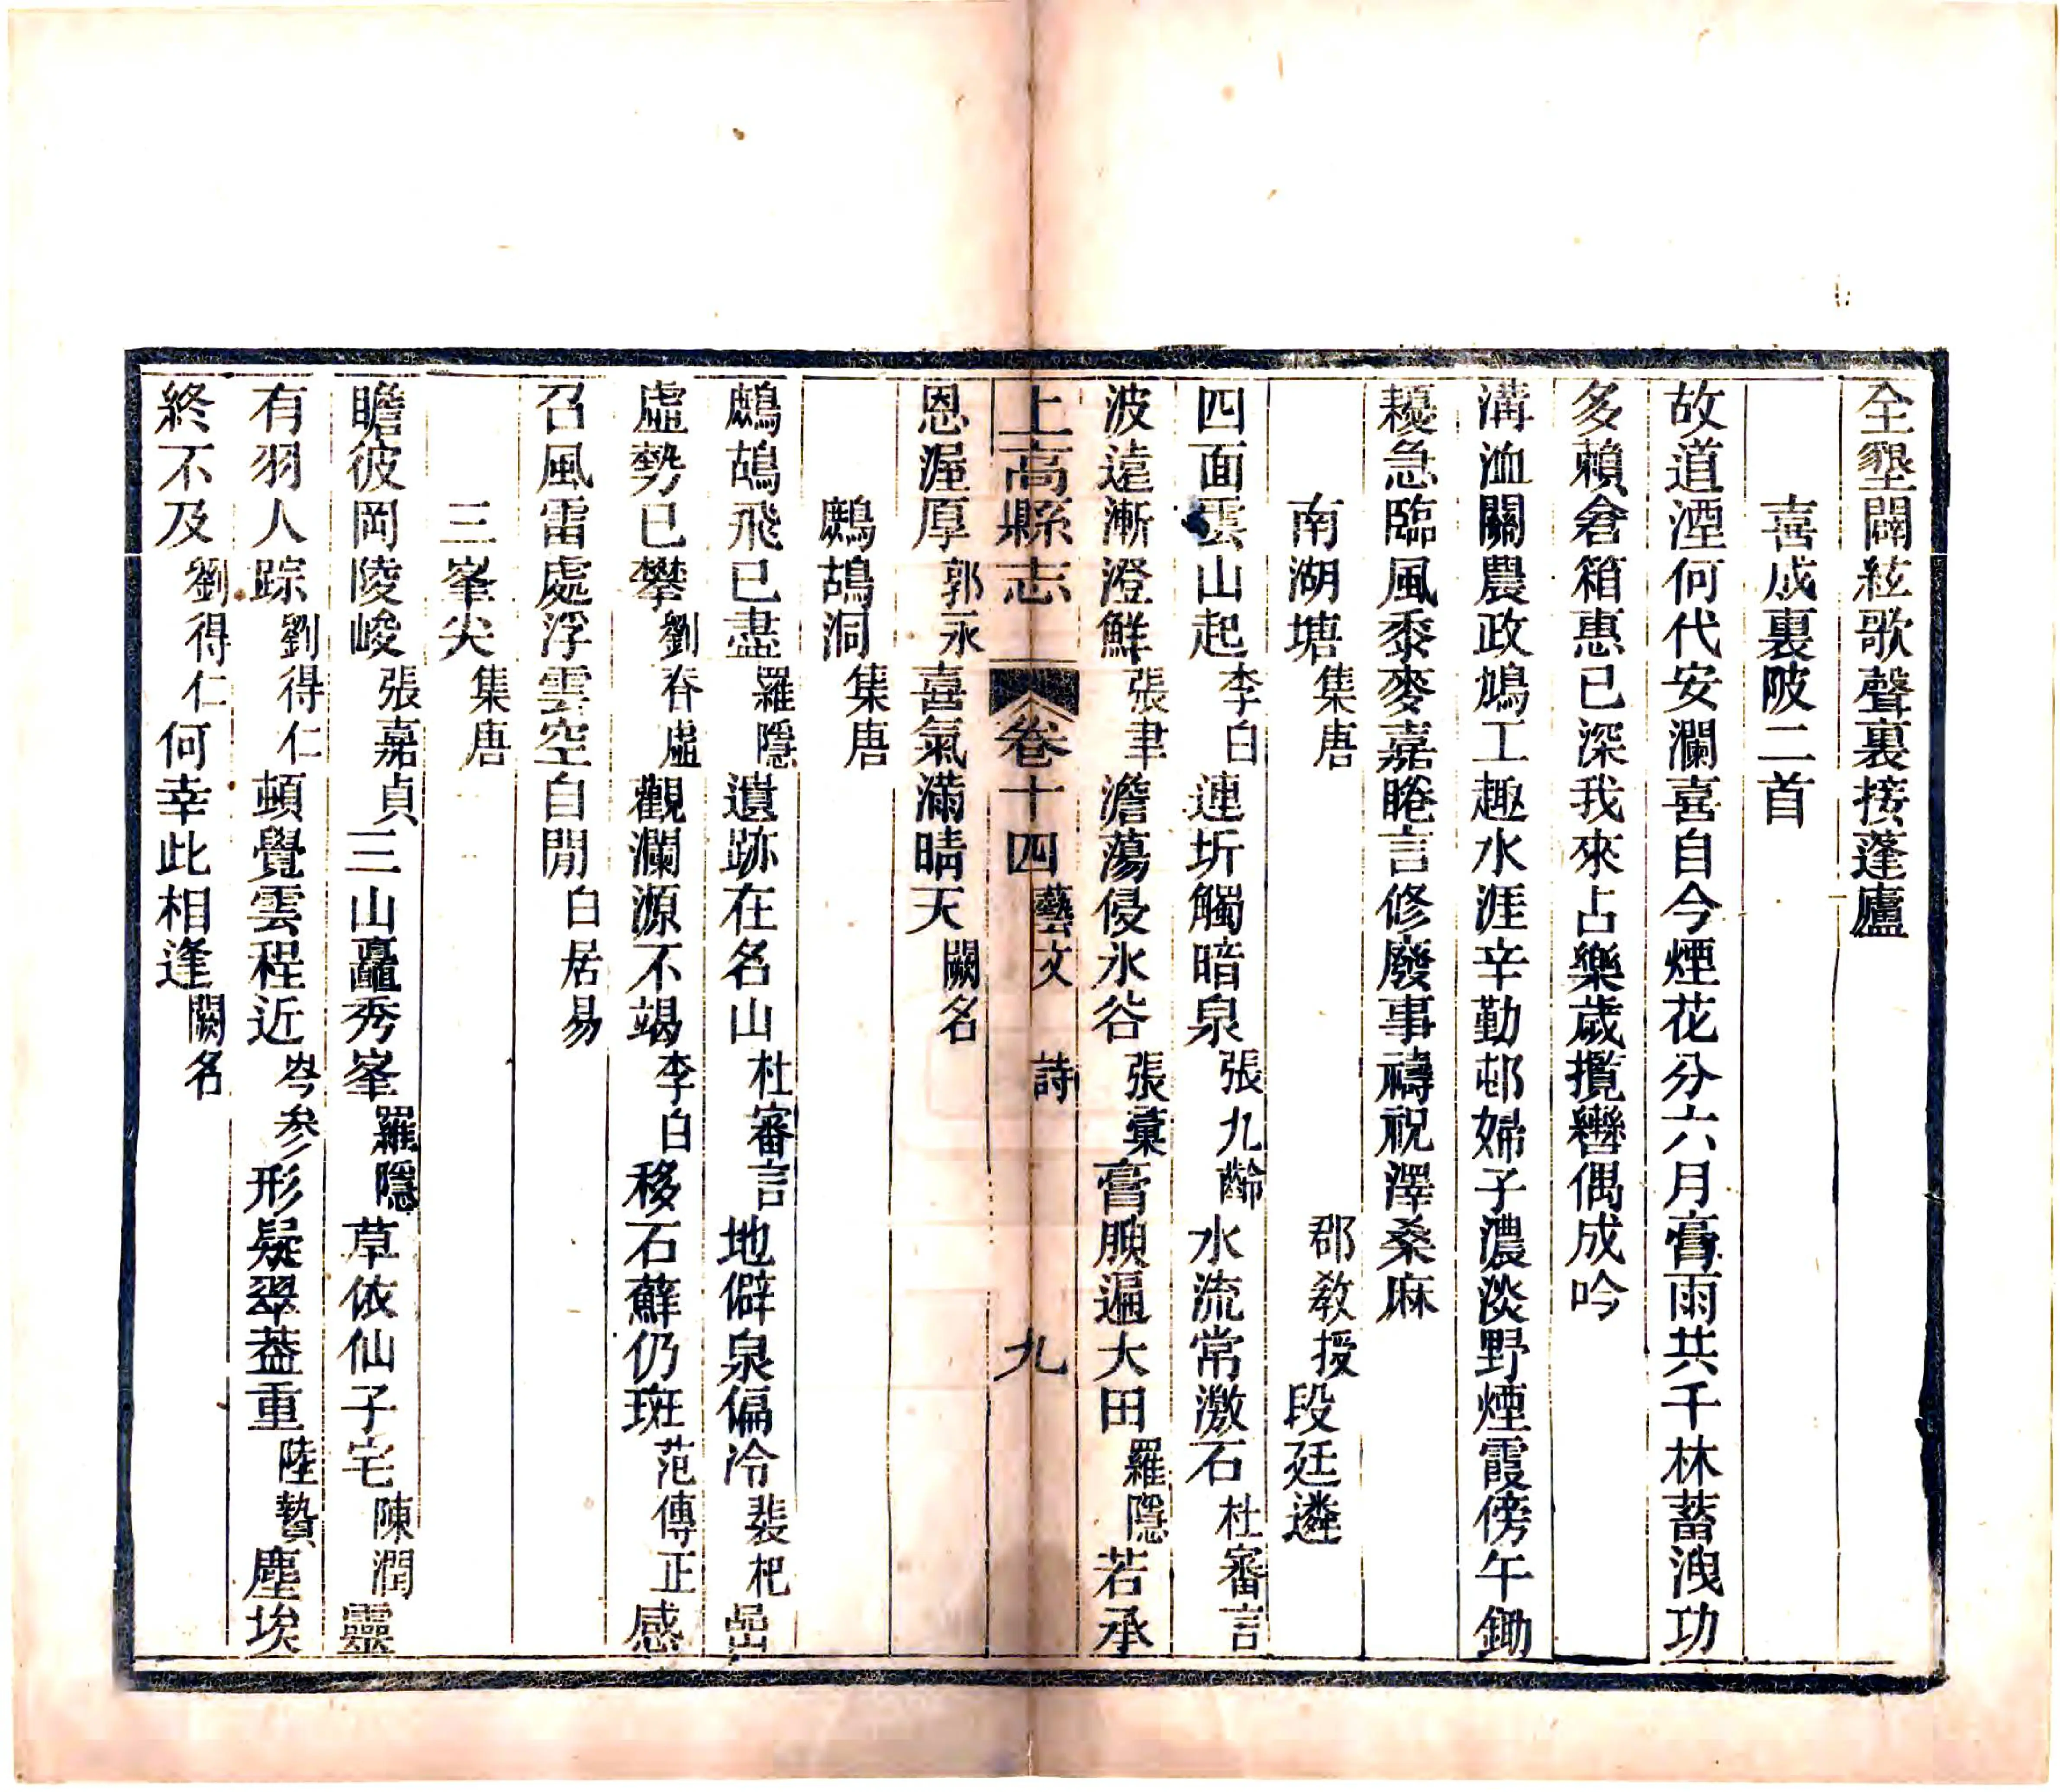 全墾闢絃歌聲裏接蓬廬
喜成裏陂二首
故道湮何代安瀾喜自今煙花分六月膏雨共千林蓄洩功
多賴倉箱惠已深我來占樂歲攬轡偶成吟
溝洫關農政鳩工趣水涯辛勤邨婦子濃淡野煙霞傍午鋤
耰急臨風黍麥嘉睠言修廢事禱祝澤桑麻
南湖塘集唐 郡教授段廷遴
四面雲山起李白連圻觸暗泉張九齡水流常激石杜審言
波遠漸澄鮮張聿澹蕩侵氷谷張彙膏腴遍大田羅隱若承
上高縣志 卷十四藝文 詩 九
恩渥厚郭永喜氣滿晴天闕名
鷓鴣洞集唐
鷓鴣飛已盡羅隱遺跡在名山杜審言地僻泉偏冷裴杞嵒
虛勢已攀劉昚虛觀瀾源不竭李白移石蘚仍斑范傳正感
召風雷處浮雲空自閒白居易
三峯尖集唐
瞻彼岡陵峻張嘉貞三山矗秀峯羅隱草依仙子宅陳潤靈
有羽人踪劉得仁頓覺雲程近岑参形疑翠葢重陸贄塵埃
終不及劉得仁何幸此相逢闕名